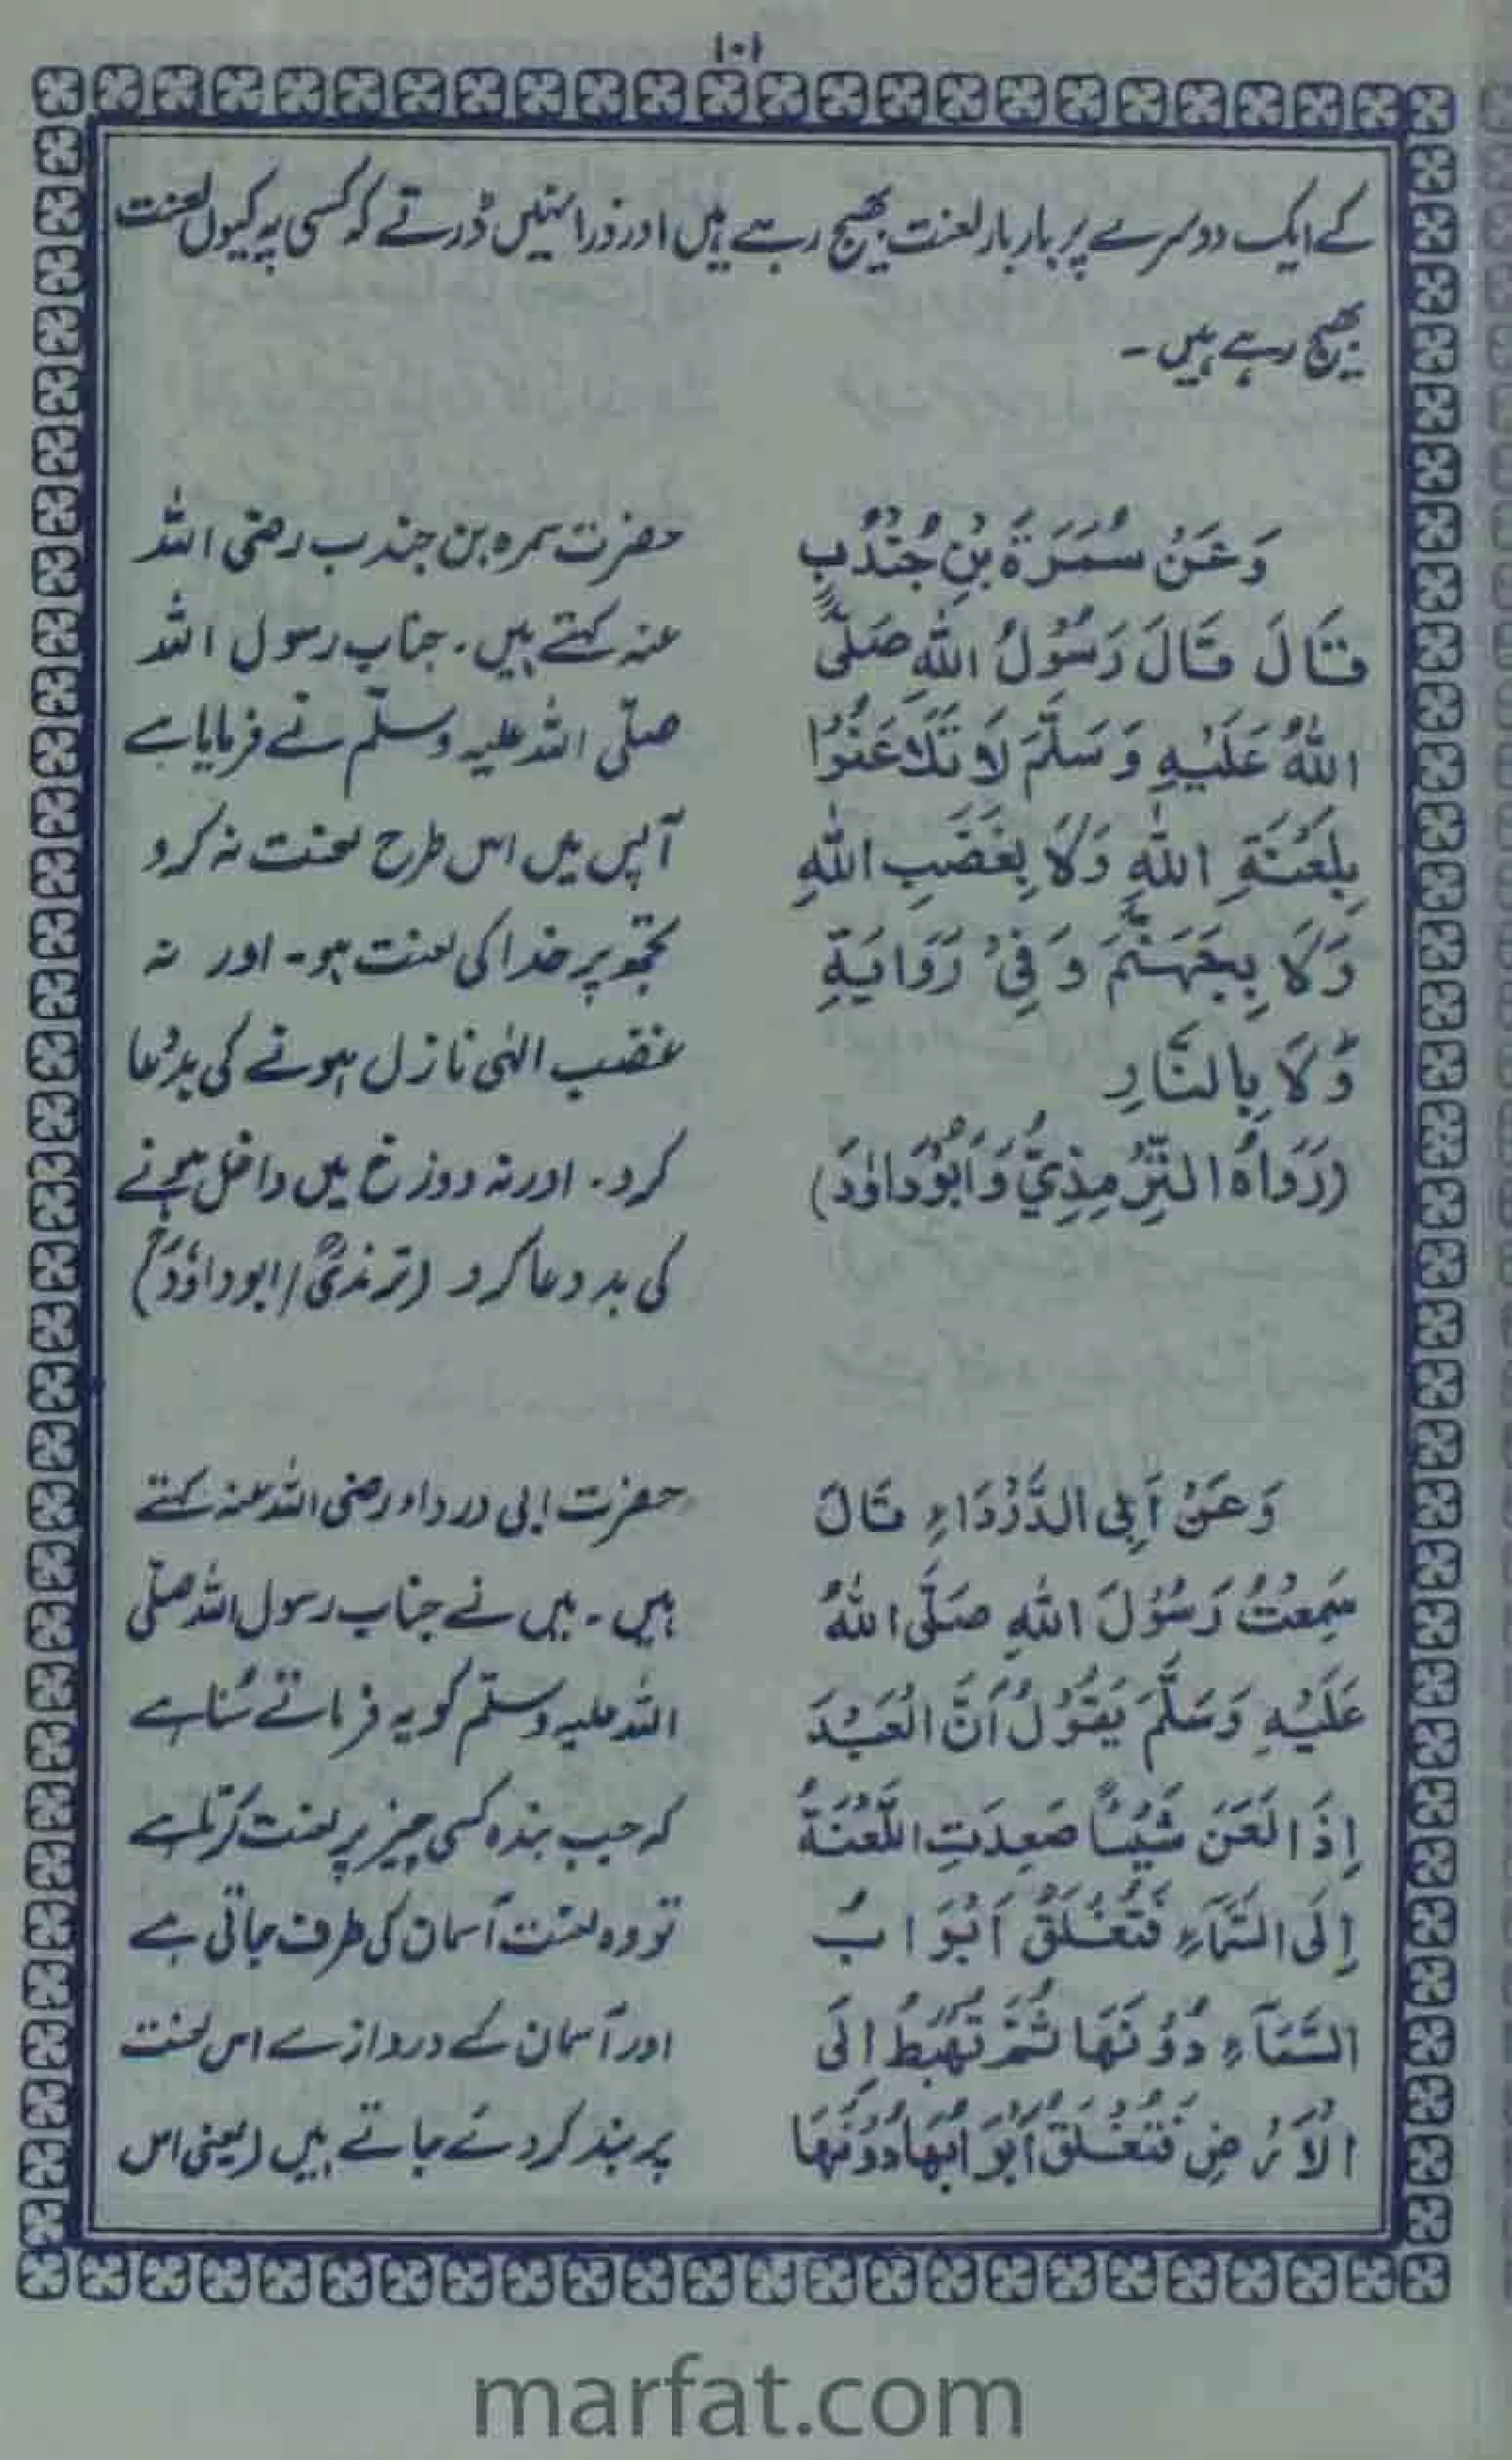 ۱۰۱
کے ایک دوسرے پر بار بار لعنت بھیج رہے ہیں اور ذرا نہیں ڈرتے کہ کسی پہ کیوں لعنت
بھیج رہے ہیں ۔
وَعَنْ سَمُرَةَ بْنِ جُنْدُبٍ
قَالَ قَالَ رَسُوْلُ اللهِ صَلَّى
اللهُ عَلَيْهِ وَسَلَّمَ لَا تَلَاعَنُوْا
بِلَعْنَةِ اللهِ وَلَا بِغَضَبِ اللهِ
وَلَا بِجَهَنَّمَ وَفِيْ رَوَايَةٍ
وَّلَا بِالنَّارِ
(رَوَاهُ التِّرْمِذِيُّ وَاَبُوْدَاوٗدَ)
حضرت سمرہ بن جندب رضی اللہ
عنہ کہتے ہیں ۔ جناب رسول اللہ
صلّی اللہ علیہ وسلّم نے فرمایا ہے
آپس میں اس طرح لعنت نہ کرو
تجھ پر خدا کی لعنت ہو ۔ اور نہ
غضب الٰہی نازل ہونے کی بدعا
کرو ۔ اور نہ دوزخ میں داخل ہونے
کی بد دعا کرو (ترمذیؒ / ابوداؤدؒ)
وَعَنْ اَبِى الدَّرْدَاءِ قَالَ
سَمِعْتُ رَسُوْلَ اللهِ صَلَّى اللهُ
عَلَيْهِ وَسَلَّمَ يَقُوْلُ اَنَّ الْعَبْدَ
اِذَا لَعَنَ شَيْئًا صَعِدَتِ اللَّعْنَةُ
اِلَى السَّمَآءِ فَتُغْلَقُ اَبْوَابُ
السَّمَآءِ دُوْنَهَا ثُمَّ تَهْبِطُ اِلَى
الْاَرْضِ فَتُغْلَقُ اَبْوَابُهَا دُوْنَهَا
حضرت ابی درداء رضی اللہ عنہ کہتے
ہیں ۔ میں نے جناب رسول اللہ صلّی
اللہ علیہ وسلّم کو یہ فرماتے سُنا ہے
کہ جب بندہ کسی چیز پر لعنت کرتا ہے
تو وہ لعنت آسمان کی طرف جاتی ہے
اور آسمان کے دروازے اس لعنت
پر بند کر دئے جاتے ہیں (یعنی اس
marfat.com